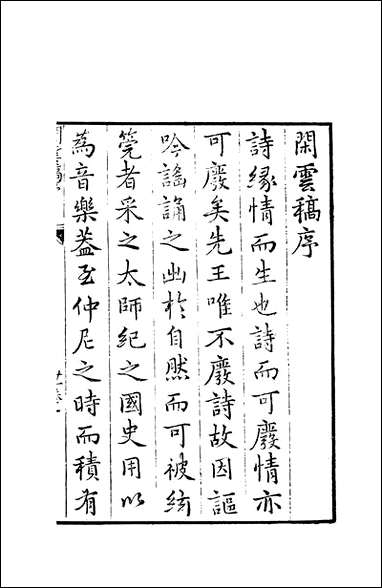 閑雲稿序
詩緣情而生也詩而可廢情亦
可廢矣先王唯不廢詩故因謳
吟謠誦之出於自然而可被絃
筦者采之太師紀之國史用以
為音樂蓋至仲尼之時而積有